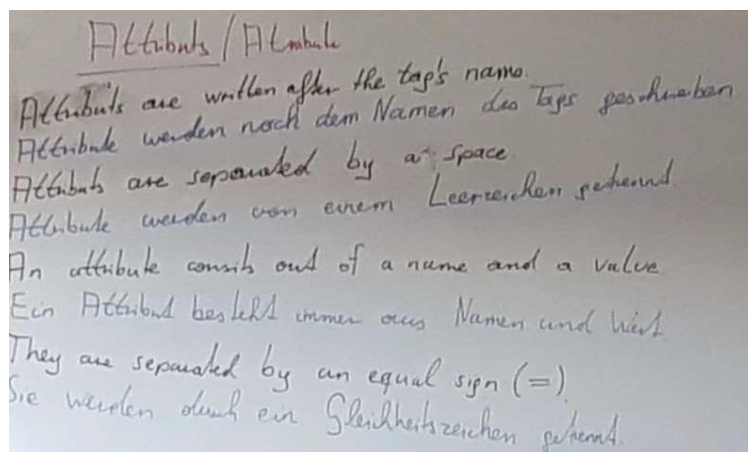 Attributs / Attribute
Attributs are written after the tag's name.
Attribute werden nach dem Namen des Tags geschrieben
Attributs are separated by a space.
Attribute werden von einem Leerzeichen getrennt.
An attribute consits out of a name and a value
Ein Attribut besteht immer aus Namen und Wert
They are separated by an equal sign (=).
Sie werden durch ein Gleichheitszeichen getrennt.